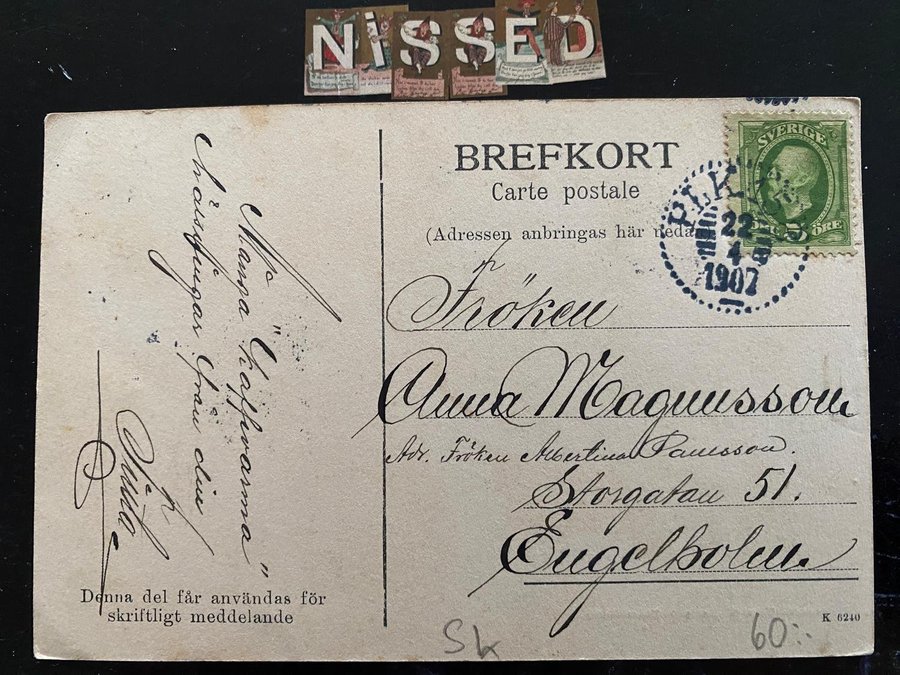 NISSED
BREFKORT
Carte postale
(Adressen anbringas här nedan)
SVERIGE
5 ÖRE
PLK
22
4
1907
Fröken
Anna Magnusson
Adr. Fröken Albertina Paulsson.
Storgatan 51.
Engelholm
Många "halfvarma"
hälsningar från din
Denna del får användas för
skriftligt meddelande
K 6240
Sk
60:-